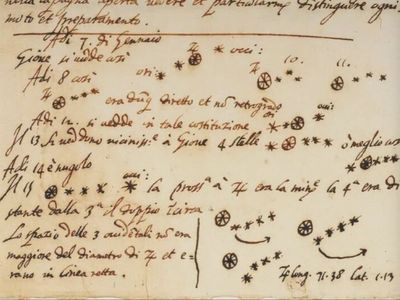 nella ... aperta havere et particolarmẽ distinguere ogni
moto et preparamento.
Adi 7. di Gennaio
Gione si vedde così ♃ * occi:
Adi 8 così ori: 10. 11.
♃ era dũq diretto et nõ retrogrado
ori occi:
Adi 12. si vedde in tale costituzione
Il 13 si veddono vicinissᵉ à Giove 4 stelle ò meglio così
Adi 14 è nugolo
Il 15 occi: la prossᵃ à ♃ era la minᵉ la 4ᵃ era di
stante dalla 3ᵃ il doppio Ĩcirca
Lo spazio delle 3 occidẽtali nõ era
maggiore del diametro di ♃ et e-
rano in linea retta.
♃ long. 71.38 lat. 1.13